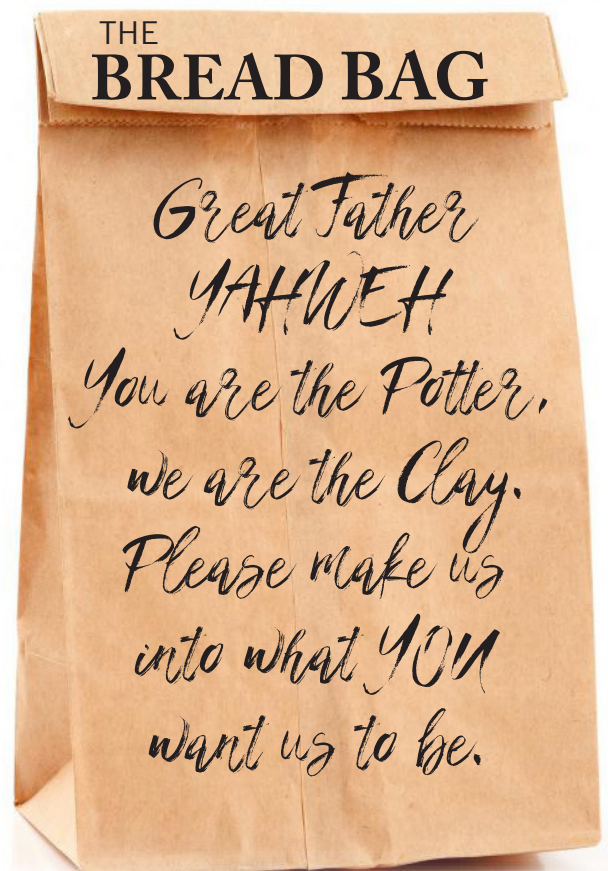 THE
BREAD BAG
Great Father
YAHWEH
You are the Potter,
we are the Clay.
Please make us
into what YOU
want us to be.